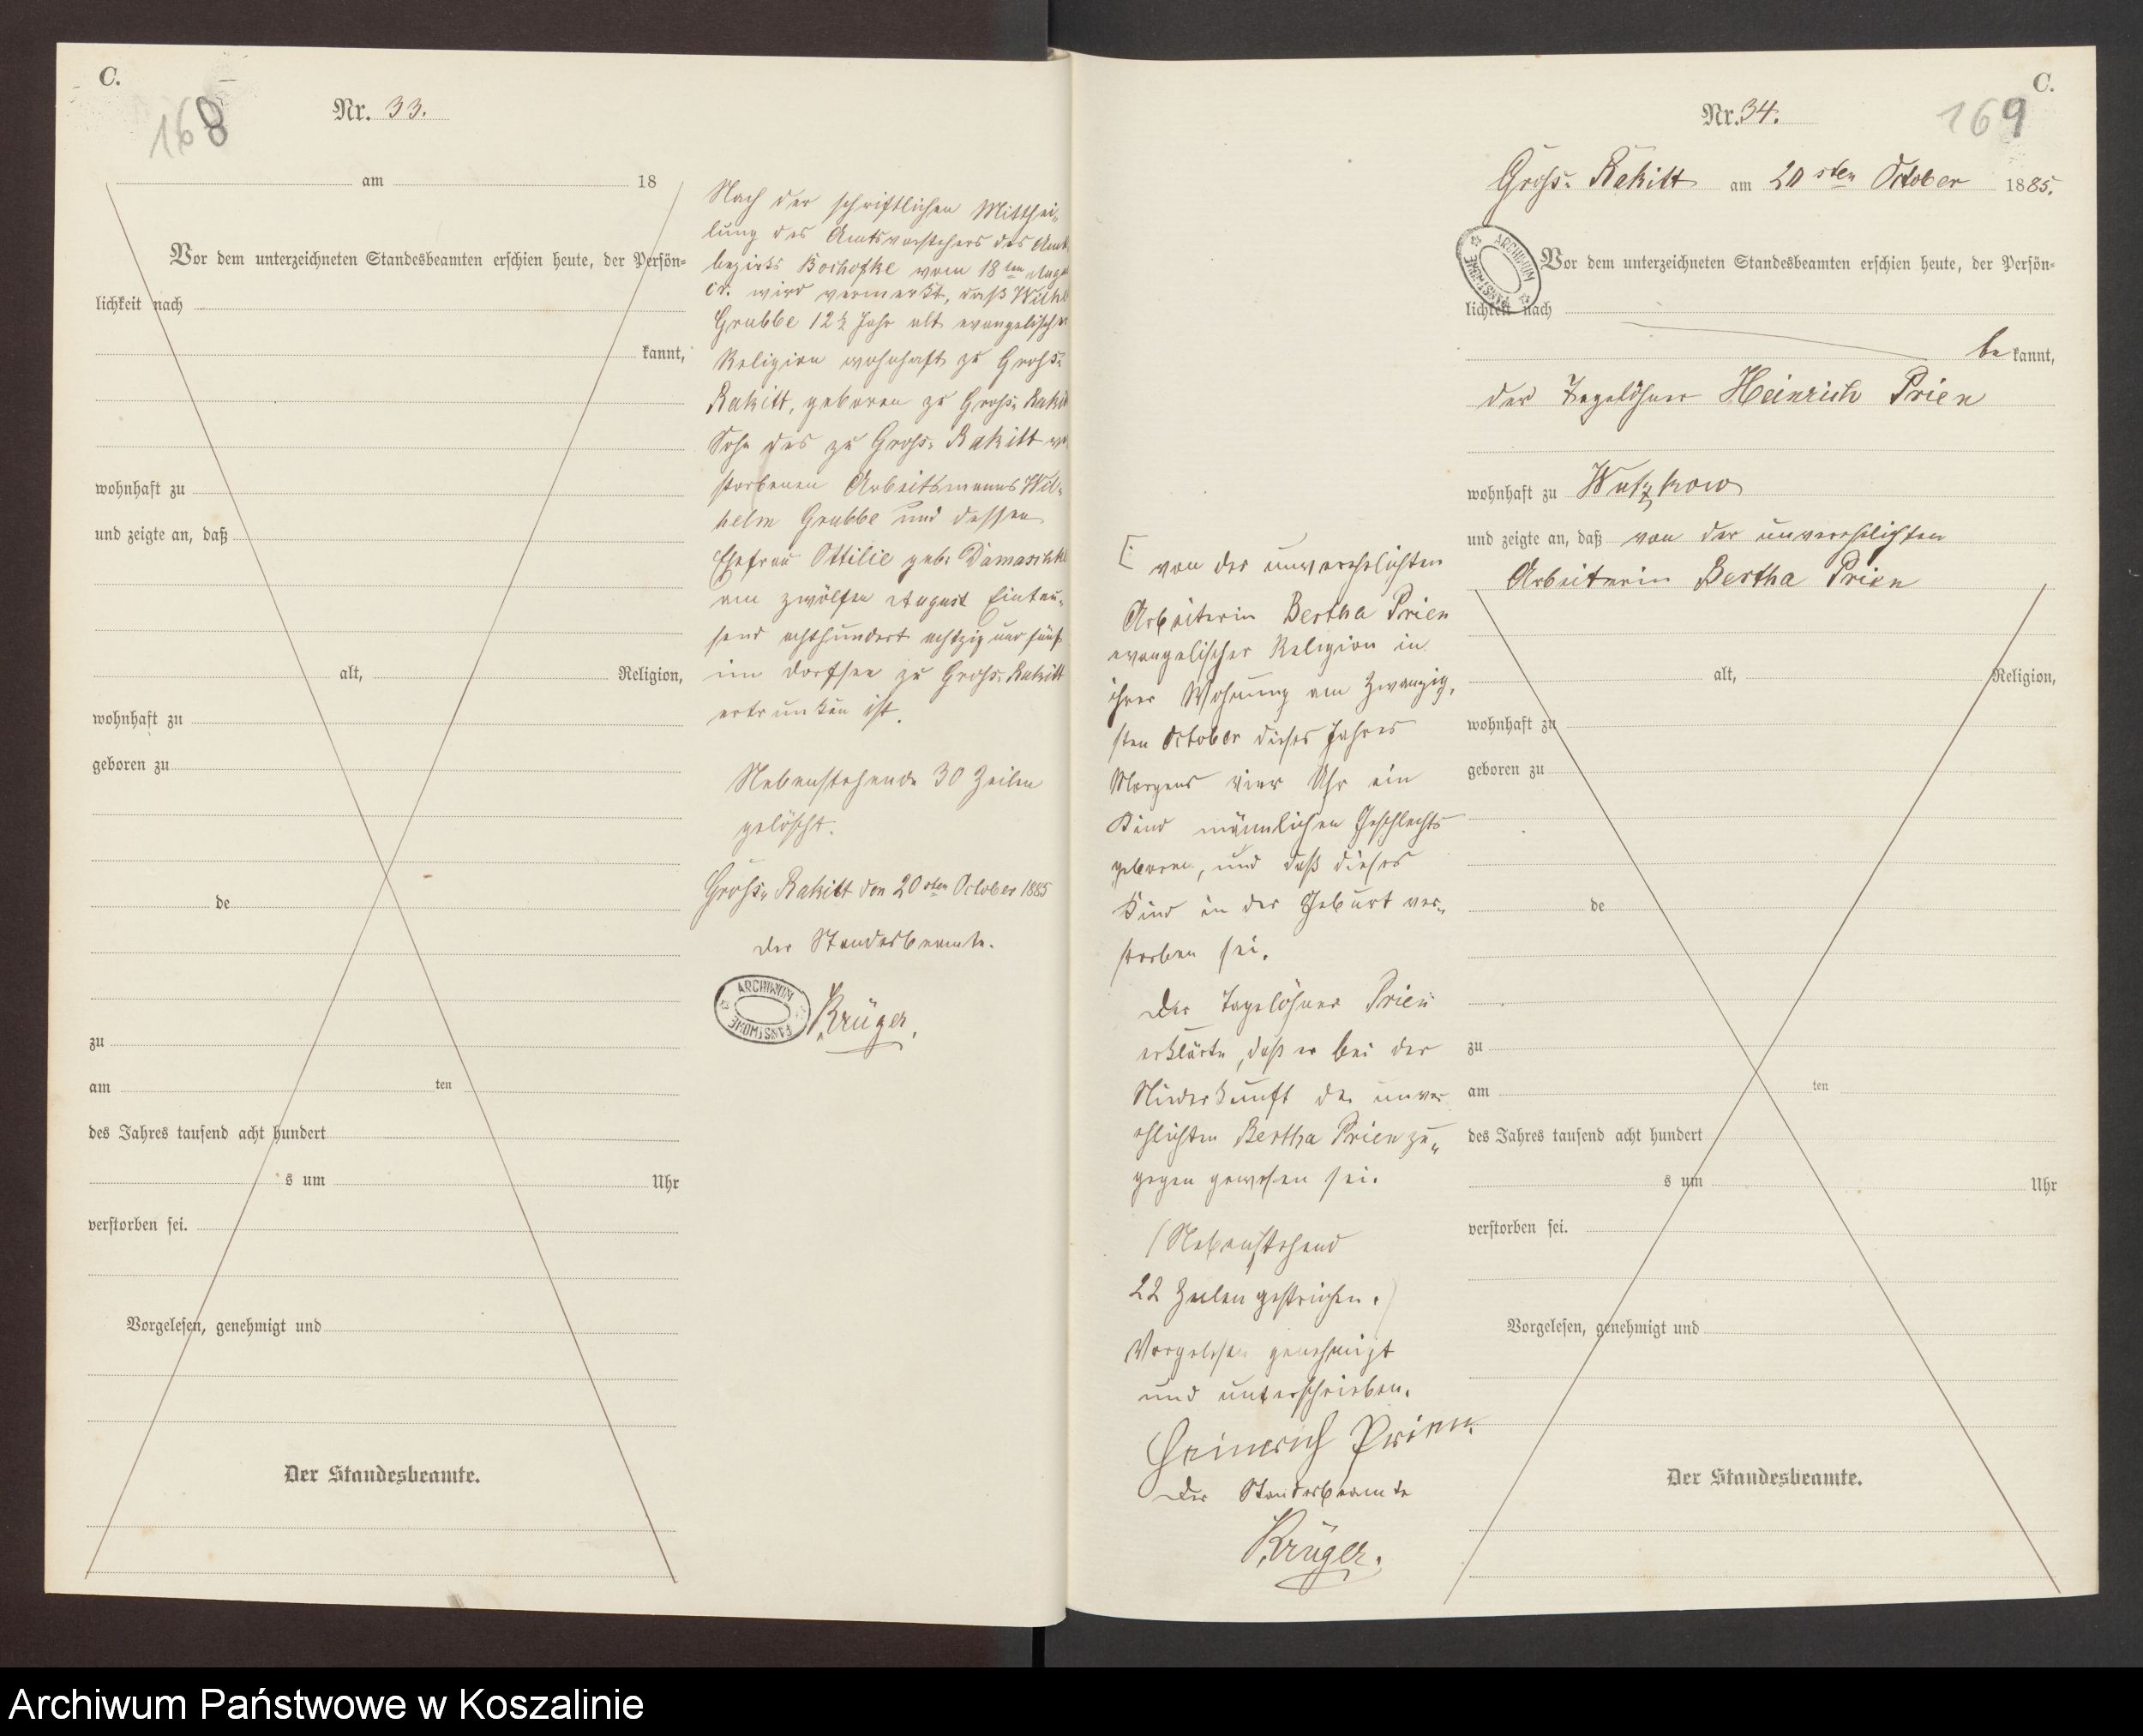 C.
168
Nr. 33.
am 18
Vor dem unterzeichneten Standesbeamten erschien heute, der Persön=
lichkeit nach
kannt,
wohnhaft zu
und zeigte an, daß
alt, Religion,
wohnhaft zu
geboren zu
de
zu
am ten
des Jahres tausend acht hundert
s um Uhr
verstorben sei.
Vorgelesen, genehmigt und
Der Standesbeamte.
Nach der schriftlichen Mitthei„
lung des Amtsvorstehers des Amts
bezirks vom 18ten
cr. wird vermerkt, daß
Grubbe 12½ Jahr alt evangelischer
Religion wohnhaft zu Groß„
Rakitt, geboren zu Groß„ Rakitt
Sohn des zu Groß„ Rakitt ver
storbenen Arbeitsmanns Wil„
helm Grubbe und dessen
Ehefrau Ottilie geb. Damaschke
am zwölften August Eintau„
send achthundert achtzig und fünf
im Dorfsee zu Groß„ Rakitt
ertrunken ist.
Nebenstehende 30 Zeilen
gelöscht.
Groß„ Rakitt den 20sten October 1885
Der Standesbeamte.
ARCHIWUM PAŃSTWOWE
Krüger.
C.
169
Nr. 34.
Groß„ Rakitt am 20sten October 1885.
ARCHIWUM PAŃSTWOWE
Vor dem unterzeichneten Standesbeamten erschien heute, der Persön=
lichkeit nach
be kannt,
der Tagelöhner Heinrich Prien
wohnhaft zu Wutzkow
und zeigte an, daß von der unverehelichten
Arbeiterin Bertha Prien
alt, Religion,
wohnhaft zu
geboren zu
de
zu
am ten
des Jahres tausend acht hundert
s um Uhr
verstorben sei.
Vorgelesen, genehmigt und
Der Standesbeamte.
[: von der unverehelichten
Arbeiterin Bertha Prien
evangelischer Religion in
ihrer Wohnung am Zwanzig„
sten October dieses Jahres
Morgens vier Uhr ein
Kind männlichen Geschlechts
geboren, und daß dieses
Kind in der Geburt ver„
storben sei.
Der Tagelöhner Prien
erklärte, daß er bei der
Niederkunft der unver
ehlichten Bertha Prien zu„
gegen gewesen sei.
(Nebenstehend
22 Zeilen gestrichen.)
Vorgelesen genehmigt
und unterschrieben.
Heinrich Prien.
Der Standesbeamte
Krüger.
Archiwum Państwowe w Koszalinie